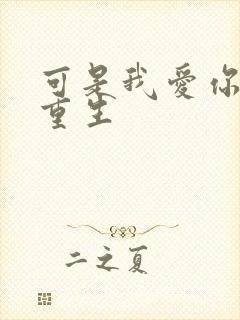 可是我爱你
重生
二之夏